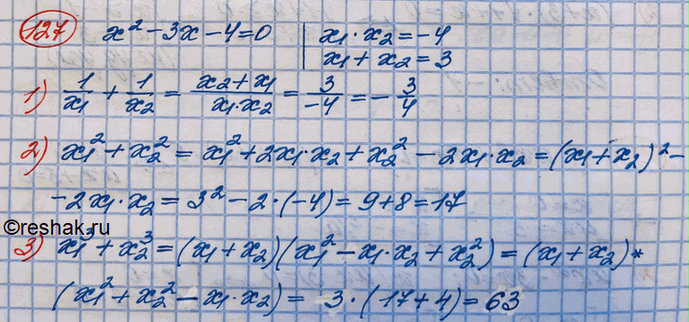 127 x² - 3x - 4 = 0 | x₁ · x₂ = -4
x₁ + x₂ = 3
1) 1/x₁ + 1/x₂ = (x₂ + x₁)/(x₁ · x₂) = 3/(-4) = - 3/4
2) x₁² + x₂² = x₁² + 2x₁ · x₂ + x₂² - 2x₁ · x₂ = (x₁ + x₂)² -
- 2x₁ · x₂ = 3² - 2 · (-4) = 9 + 8 = 17
©reshak.ru
3) x₁³ + x₂³ = (x₁ + x₂)(x₁² - x₁ · x₂ + x₂²) = (x₁ + x₂) *
(x₁² + x₂² - x₁ · x₂) = 3 · (17 + 4) = 63